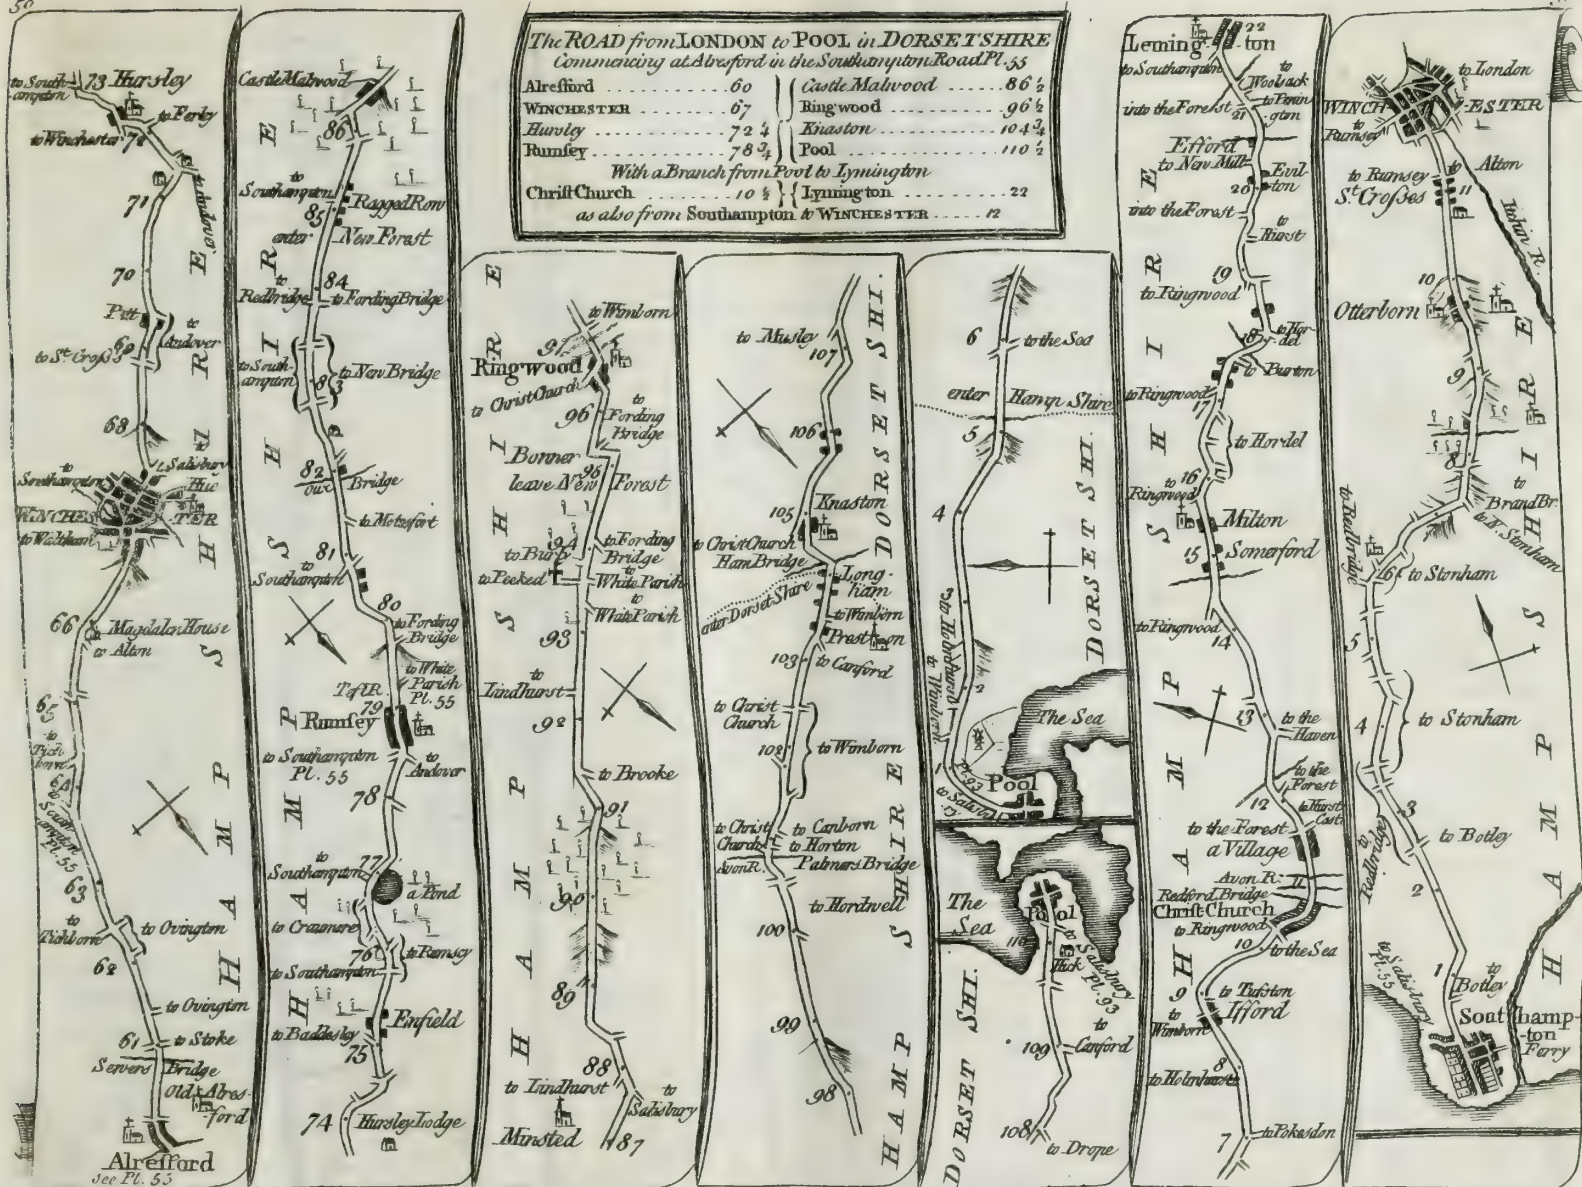 The ROAD from LONDON to POOL in DORSETSHIRE
Commencing at Alresford in the Southampton Road Pl. 55
Alresford 60
WINCHESTER 67
Hursley 72 1/4
Rumsey 78 3/4
Castle Malwood 86 1/2
Ringwood 96 1/2
Knaston 104 3/4
Pool 110 1/2
With a Branch from Pool to Lymington
Christ Church 10 1/2
Lymington 22
as also from Southampton to WINCHESTER 12
to South-
ampton
73 Hursley
to Ferley
to Winchester 72
to Andover
71
70
Pitt
to Andover
69
to St. Croſses
68
to Salisbury
to Southampton
WINCHES TER
to Waltham
66
Magdalen House
to Alton
65
to Tichborn
64
Southampton
Pl. 55
63
to Tichborn
to Ovington
62
to Ovington
61
to Stoke
Servers Bridge
Old Alres-
ford
Alreſford
See Pl. 55
HAMPSHIRE
Castle Malwood
86
to Southampton
Ragged Row
85
enter New Forest
84
to Redbridge
to Fording Bridge
to South-
ampton
83
to New Bridge
82
Our Bridge
to Motesfort
81
to Southampton
80
to Fording
Bridge
to White
Parish
Pl. 55
Test R.
79
Rumsey
to Southampton
Pl. 55
to Andover
78
to Southampton
77
a Pond
to Cranmere
76
to Rumsey
to Southampton
Enfield
to Baddesley
75
74
Hursley Lodge
HAMPSHIRE
to Wimborn
97
Ringwood
to Christ Church
96
to Fording
Bridge
Bonner
95
leave New Forest
94
to Fording
Bridge
to Burſ
to Peeked
to White Parish
to White Parish
93
to Lindhurst
92
to Brooke
91
90
89
88
to Lindhurst
to Salisbury
Minsted
87
HAMPSHIRE
to Musley
107
106
Knaston
105
to Christ Church
Ham Bridge
Long-
ham
enter Dorset Shire
to Wimborn
Preston
103
to Canford
to Christ
Church
102
to Wimborn
to Christ
Church
to Canborn
to Horton
Avon R.
Palmers Bridge
to Hordwell
100
99
98
DORSET SHI.
HAMPSHIRE
6
to the Sea
enter Hamp Shire
5
4
to Wimborn
2
The Sea
Pl. 93
Pool
to Salisbury
DORSET SHI.
The Sea
Pool
110
to Salisbury
Pl. 93
109
to Canford
108
to Drope
DORSET SHI.
Leming-ton
22
to Southampton
to Woolack
into the Forest
21
to Penin
gton
Efford
to New Mill
Evil-
ton
20
into the Forest
to Hurst
19
to Ringwood
18
to Hor-
del
to Burton
to Ringwood
17
to Hordel
16
to Ringwood
Milton
15
Somerford
to Ringwood
14
13
to the
Haven
to the
Forest
12
to Hurst
Cast.
to the Forest
a Village
Avon R.
11
Redford Bridge
Christ Church
to Ringwood
10
to the Sea
9
to Tufston
to Wimborn
Ifford
8
to Holmhurst
7
to Pokesdon
HAMPSHIRE
to London
WINCH ESTER
to Rumsey
to Alton
to Rumsey
11
St. Croſses
Itchin R.
10
Otterborn
9
8
to
Brand Br.
to N. Stonham
to Redbridge
6
to Stonham
5
4
to Stonham
3
to Redbridge
to Botley
2
to Salisbury
Pl. 55
1
to Botley
Southamp-
ton
Ferry
HAMPSHIRE